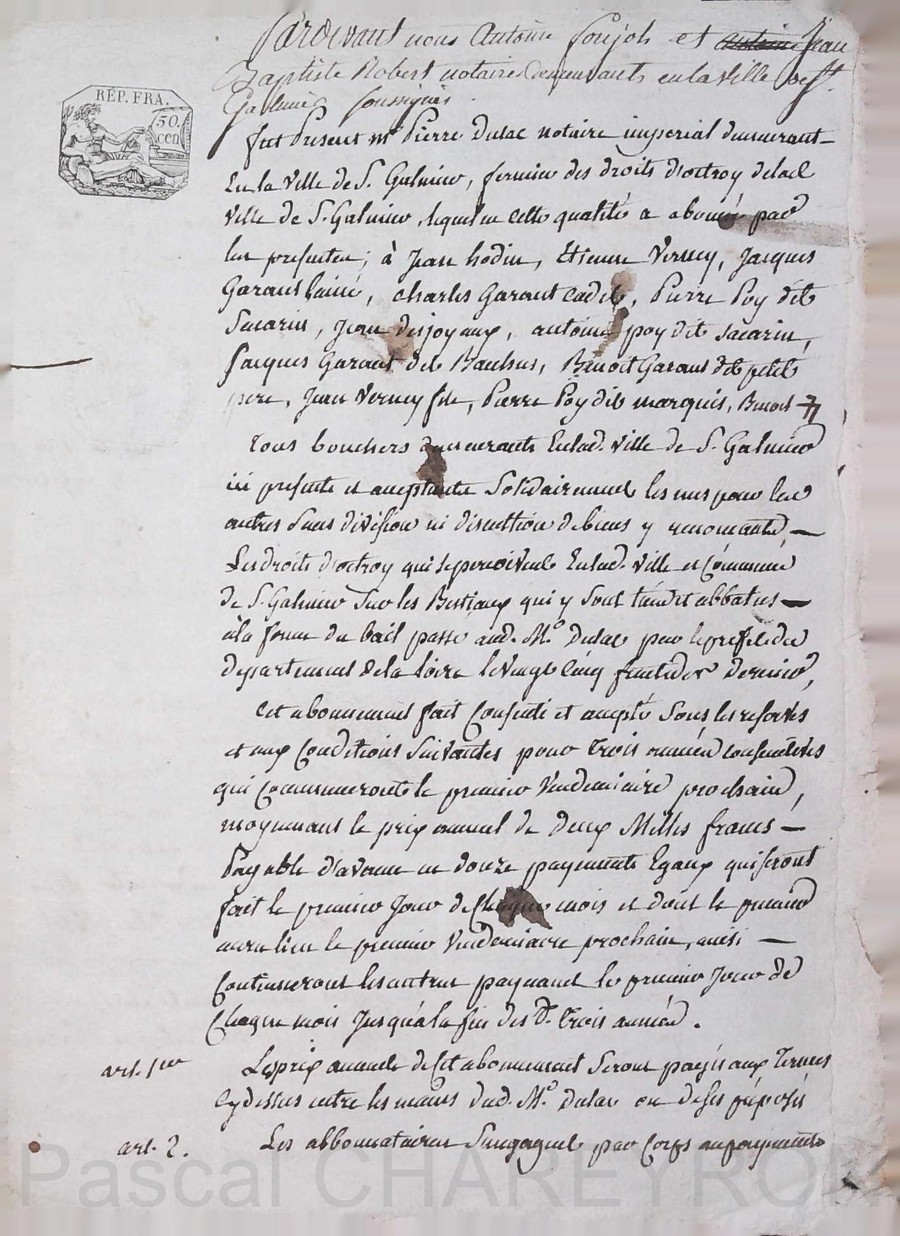 Pardevant nous Antoine Poujols et Antoine Jean
Baptiste Robert notaires demeurants en la ville de St.
Galmier soussignés.
RÉP. FRA.
50.
cen
fut Présent Mr Pierre Dulac notaire impérial demeurant
En la Ville de S. Galmier, fermier des droits d'octroy de lad
ville de S. Galmier, lequel en cette qualité a abonné par
les presentes; à Jean hodin, Etienne Verney, Jacques
Garant l'ainé, Charles Garant cadet, Pierre Poy dit
Sacarin, Jean desjoyaux, antoine poy dit sacarin,
Jacques Garant dit Bauchus, Benoit Garant dit petit
pere, Jean Verney fils, Pierre Poy dit marquis, Benoit
Tous bouchers demeurants En lad. ville de S. Galmier
ici presents et acceptants Solidairement les uns pour les
autres Sans division ni discution de biens y renonçants,
Les droits d'octroy qui se perçoivent En lad. ville et Commune
de S. Galmier Sur les Bestiaux qui y Sont tués et abbatus
a la forme du bail passé aud. Mr. Dulac par le prefet du
departement de la Loire le vingt cinq fructidor dernier,
Cet abonnement fait Consenti et accepté Sous les reserves
et aux Conditions Suivantes pour Trois années consecutives
qui Commenceront le premier Vendemiaire prochain,
moyennant le prix annuel de deux Milles francs
Payable d'avance en douze payements Egaux qui seront
fait le premier Jour de Chaque mois et dont le premier
aura lieu le premier Vendemiaire prochain, ainsi
Continueront les autres payement le premier Jour de
Chaque mois Jusqu'à la fin des d. Trois années.
art. 1er
Les prix annuels de Cet abonnement Seront payés aux Termes
Cydessus entre les mains dud. Mr. Dulac ou de ses préposés
art. 2.
Les abbonnataires S'engagent par Corps au payements
Pascal CHAREYRON